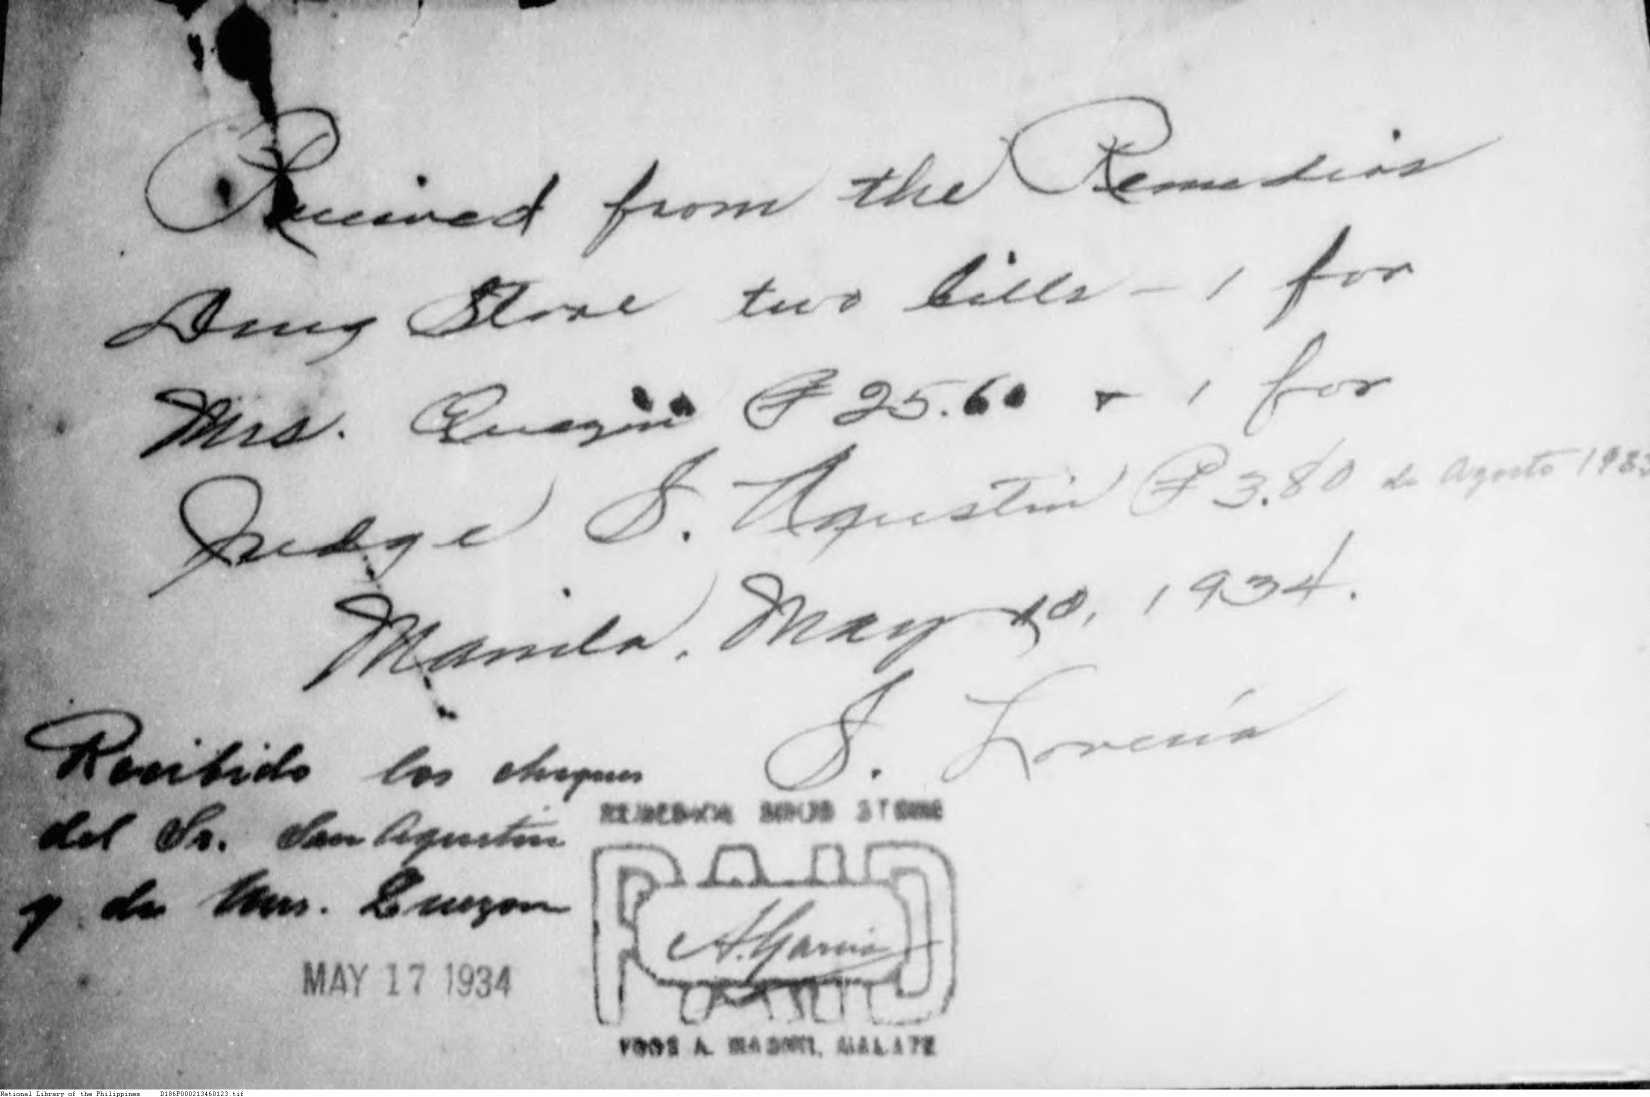 Received from the Remedios
Drug Store two bills - 1 for
Mrs. Quezon ₱ 25.60 + 1 for
Judge S. Agustin ₱ 3.80 de Agosto 1933
Manila, May 10, 1934.
S. Lorenia
Recibido los cheques
del Sr. San Agustin
y de Mrs. Quezon
MAY 17 1934
REMEDIOS DRUG STORE
PAID
A. Garcia
A. MABINI, MALATE
National Library of the Philippines D186P000213460123.tif